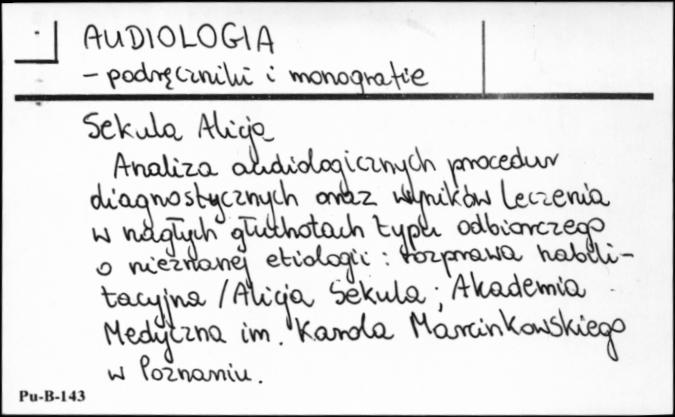 AUDIOLOGIA
- podręczniki i monografie
Sekula Alicja
Analiza audiologicznych procedur
diagnostycznych oraz wyników leczenia
w nagłych głuchotach typu odbiorczego
o nieznanej etiologii : rozprawa habili-
tacyjna / Alicja Sekula ; Akademia
Medyczna im. Karola Marcinkowskiego
w Poznaniu.
Pu-B-143